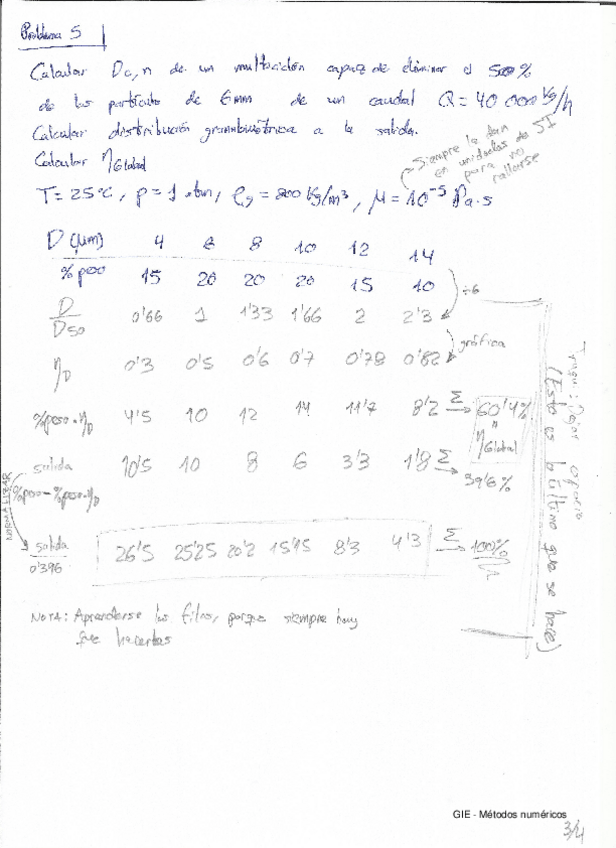 Problema 5
Calcular Dc, n de un multiciclón capaz de eliminar el 50%
de las partículas de 6mm de un caudal Q = 40 000 kg/h
Calcular distribución granulométrica a la salida.
Calcular ηGlobal
Siempre la dan
en unidades de SI
para no
rallarse
T = 25°C, P = 1 atm, ρg = 800 kg/m³, μ = 10⁻⁵ Pa·s
D (μm) 4 6 8 10 12 14
% peso 15 20 20 20 15 10
÷6
D/D50 0'66 1 1'33 1'66 2 2'3
gráfica
ηD 0'3 0'5 0'6 0'7 0'78 0'82
%peso·ηD 4'5 10 12 14 11'7 8'2 Σ → 60'4%
"
ηGlobal
salida 10'5 10 8 6 3'3 1'8 Σ → 39'6%
%peso-%peso·ηD
NORMALIZAR
salida/0'396 26'5 25'25 20'2 15'15 8'3 4'3 Σ → 100%
(Esto es lo último que se hace)
NOTA: Aprenderse las filas, porque siempre hay
que hacerlas
GIE - Métodos numéricos
3/4